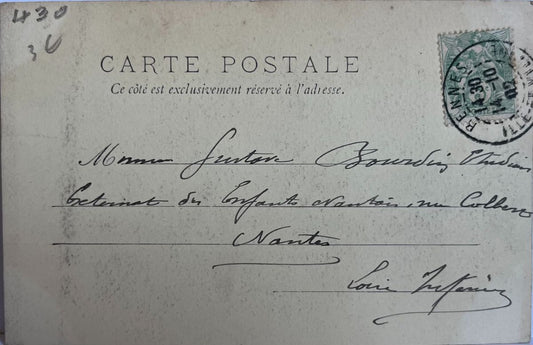 430
CARTE POSTALE
Ce côté est exclusivement réservé à l'adresse.
RENNES
14 30
Gustave Bourdin Etudiant
Externat des Enfants Nantais rue Colbert
Nantes
Loire Inférieure